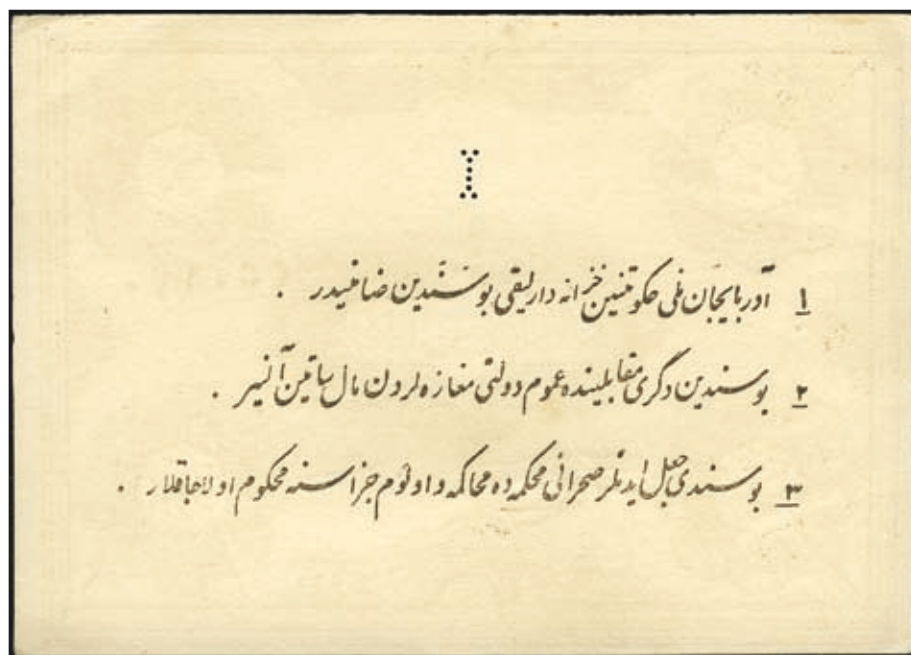 ۱ آذربایجان ملی حکومتینین خزانه دارلیقی بوسندین ضامنیدر .
۲ بوسندین دگری مقابلینده عموم دولتی مغازه لردن مال ساتین آلنیر .
۳ بوسندی جعل ایدنلر صحرائی محکمه ده محاکمه و اولوم جزاسنه محکوم اولاجاقلار .